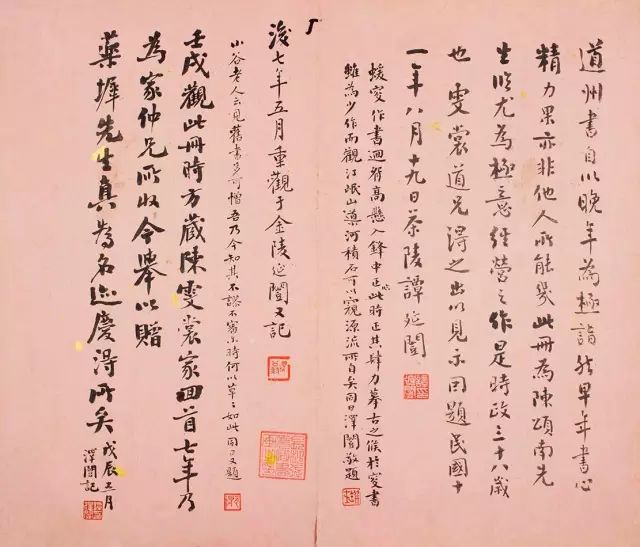 道州書自以晚年為極詣然早年書心
精力果亦非他人所能幾此冊為陳頌南先
生作尤為極意經營之作是時政三十八歲
也雯裳道兄得之出以見示因題民國十
一年八月十九日茶陵譚延闓
蝯叟作書迴腕高懸入鋒中正此時正其肆力摹古之候於叟書
雖為少作而觀江岷山導河積石可以窺源流所自矣同日澤闓敬題
後七年五月重觀于金陵延闓又記
山谷老人云見舊書多可憎吾乃今知其不謬不審尔時何以草〻如此同日又題
壬戌觀此冊時方藏陳雯裳家回首七年乃
為家仲兄所收今舉以贈
藥墀先生真為名迹慶得所矣戊辰五月
澤闓記